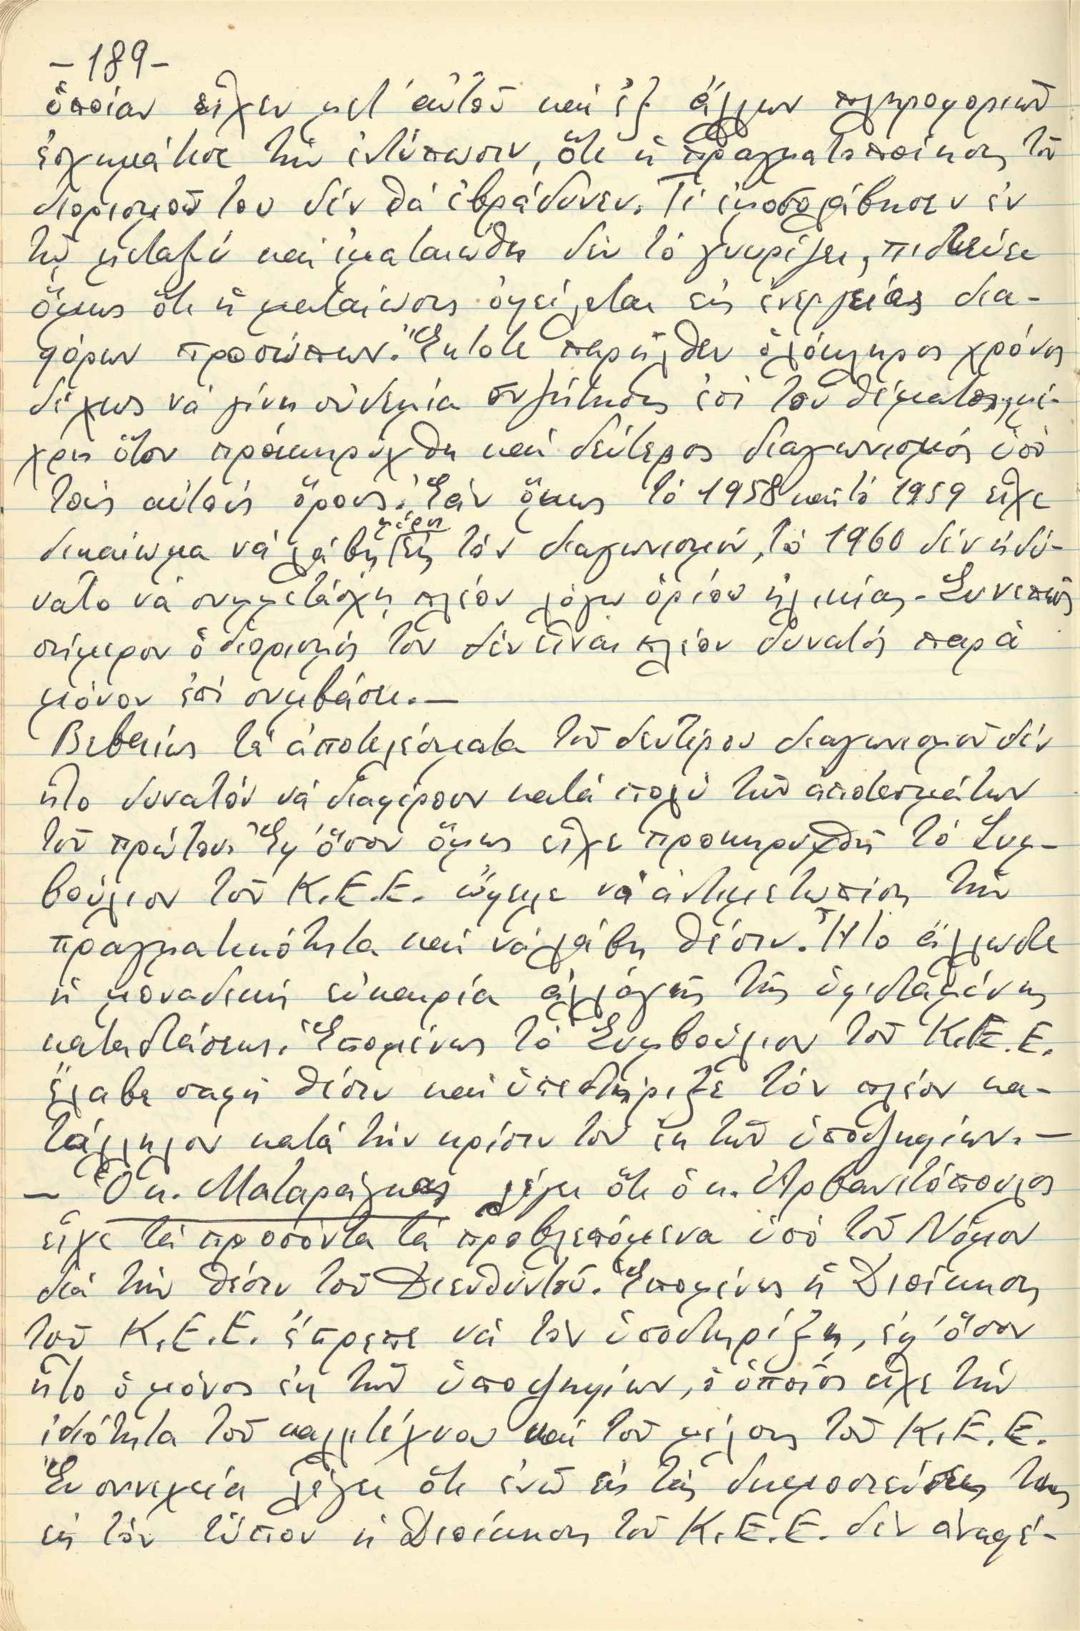 -189-
ὁποίαν εἶχεν μετ' αὐτοῦ καί ἐξ ἄλλων πληροφοριῶν
ἐσχημάτισε τήν ἐντύπωσιν, ὅτι ἡ πραγματοποίησις τοῦ
διορισμοῦ του δέν θά ἐβράδυνεν. Τί ἐμεσολάβησεν ἐν
τῷ μεταξύ καί ἐματαιώθη δέν τό γνωρίζει, πιστεύει
ὅμως ὅτι ἡ ματαίωσις ὀφείλεται εἰς ἐνεργείας δια-
φόρων προσώπων. Ἔκτοτε παρῆλθεν ὁλόκληρος χρόνος
δίχως νά γίνῃ οὐδεμία συζήτησις ἐπί τοῦ θέματος, μέ-
χρις ὅτου προεκηρύχθη καί δεύτερος διαγωνισμός ὑπό
τούς αὐτούς ὅρους. Ἐάν ὅμως τό 1958 καί τό 1959 εἶχε
δικαίωμα νά λάβῃ μέρος εἰς τόν διαγωνισμόν, τό 1960 δέν ἠδύ-
νατο νά συμμετάσχῃ πλέον λόγῳ ὁρίου ἡλικίας. Συνεπῶς
σήμερον ὁ διορισμός του δέν εἶναι πλέον δυνατός παρά
μόνον ἐπί συμβάσει.-
Βεβαίως τά ἀποτελέσματα τοῦ δευτέρου διαγωνισμοῦ δέν
ἦτο δυνατόν νά διαφέρουν κατά πολύ τῶν ἀποτεσμάτων
τοῦ πρώτου. Ἐφ' ὅσον ὅμως εἶχε προκηρυχθῆ τό Συμ-
βούλιον τοῦ Κ.Ε.Ε. ὤφειλε νά ἀντιμετωπίσῃ τήν
πραγματικότητα καί νά λάβῃ θέσιν. Ἦτο ἄλλωστε
ἡ μοναδική εὐκαιρία ἀλλαγῆς τῆς ὑφισταμένης
καταστάσεως. Ἑπομένως τό Συμβούλιον τοῦ Κ.Ε.Ε.
ἔλαβε σαφῆ θέσιν καί ὑπεστήριξε τόν πλέον κα-
τάλληλον κατά τήν κρίσιν του ἐκ τῶν ὑποψηφίων.-
- Ὁ κ. Ματαράγκας λέγει ὅτι ὁ κ. Ἀρβανιτόπουλος
εἶχε τά προσόντα τά προβλεπόμενα ὑπό τοῦ Νόμου
διά τήν θέσιν τοῦ Διευθυντοῦ. Ἑπομένως ἡ Διοίκησις
τοῦ Κ.Ε.Ε. ἔπρεπε νά τόν ὑποστηρίξῃ, ἐφ' ὅσον
ἦτο ὁ μόνος ἐκ τῶν ὑποψηφίων, ὁ ὁποῖος εἶχε τήν
ἰδιότητα τοῦ καλλιτέχνου καί τοῦ μέλους τοῦ Κ.Ε.Ε.
Ἐν συνεχείᾳ λέγει ὅτι ἐνῶ εἰς τάς δημοσιεύσεις της
εἰς τόν τύπον ἡ Διοίκησις τοῦ Κ.Ε.Ε. δέν ἀναφέ-